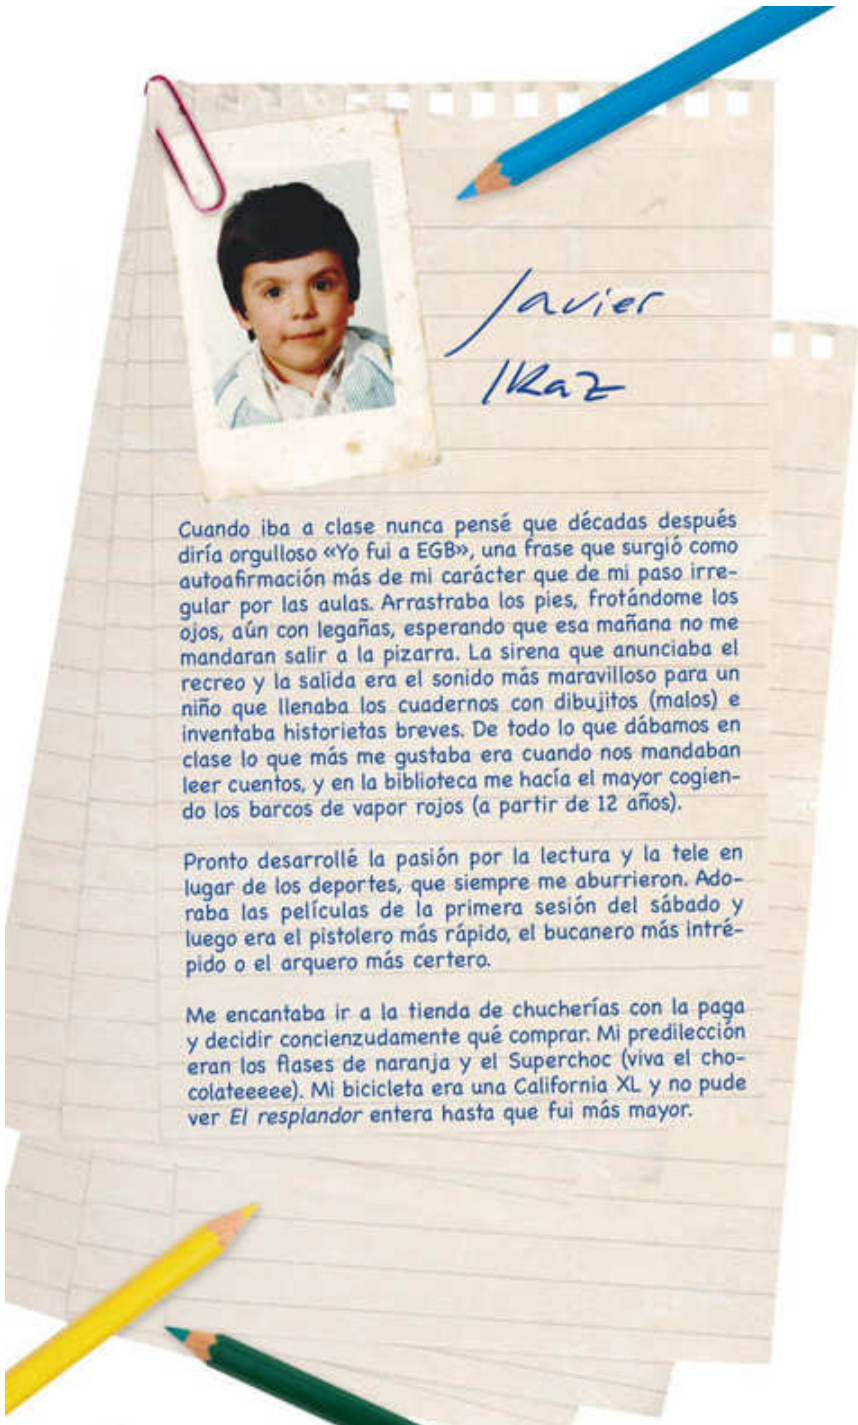 Javier
IKaz
Cuando iba a clase nunca pensé que décadas después
diría orgulloso «Yo fui a EGB», una frase que surgió como
autoafirmación más de mi carácter que de mi paso irre-
gular por las aulas. Arrastraba los pies, frotándome los
ojos, aún con legañas, esperando que esa mañana no me
mandaran salir a la pizarra. La sirena que anunciaba el
recreo y la salida era el sonido más maravilloso para un
niño que llenaba los cuadernos con dibujitos (malos) e
inventaba historietas breves. De todo lo que dábamos en
clase lo que más me gustaba era cuando nos mandaban
leer cuentos, y en la biblioteca me hacía el mayor cogien-
do los barcos de vapor rojos (a partir de 12 años).
Pronto desarrollé la pasión por la lectura y la tele en
lugar de los deportes, que siempre me aburrieron. Ado-
raba las películas de la primera sesión del sábado y
luego era el pistolero más rápido, el bucanero más intré-
pido o el arquero más certero.
Me encantaba ir a la tienda de chucherías con la paga
y decidir concienzudamente qué comprar. Mi predilección
eran los flases de naranja y el Superchoc (viva el cho-
colateeeee). Mi bicicleta era una California XL y no pude
ver El resplandor entera hasta que fui más mayor.